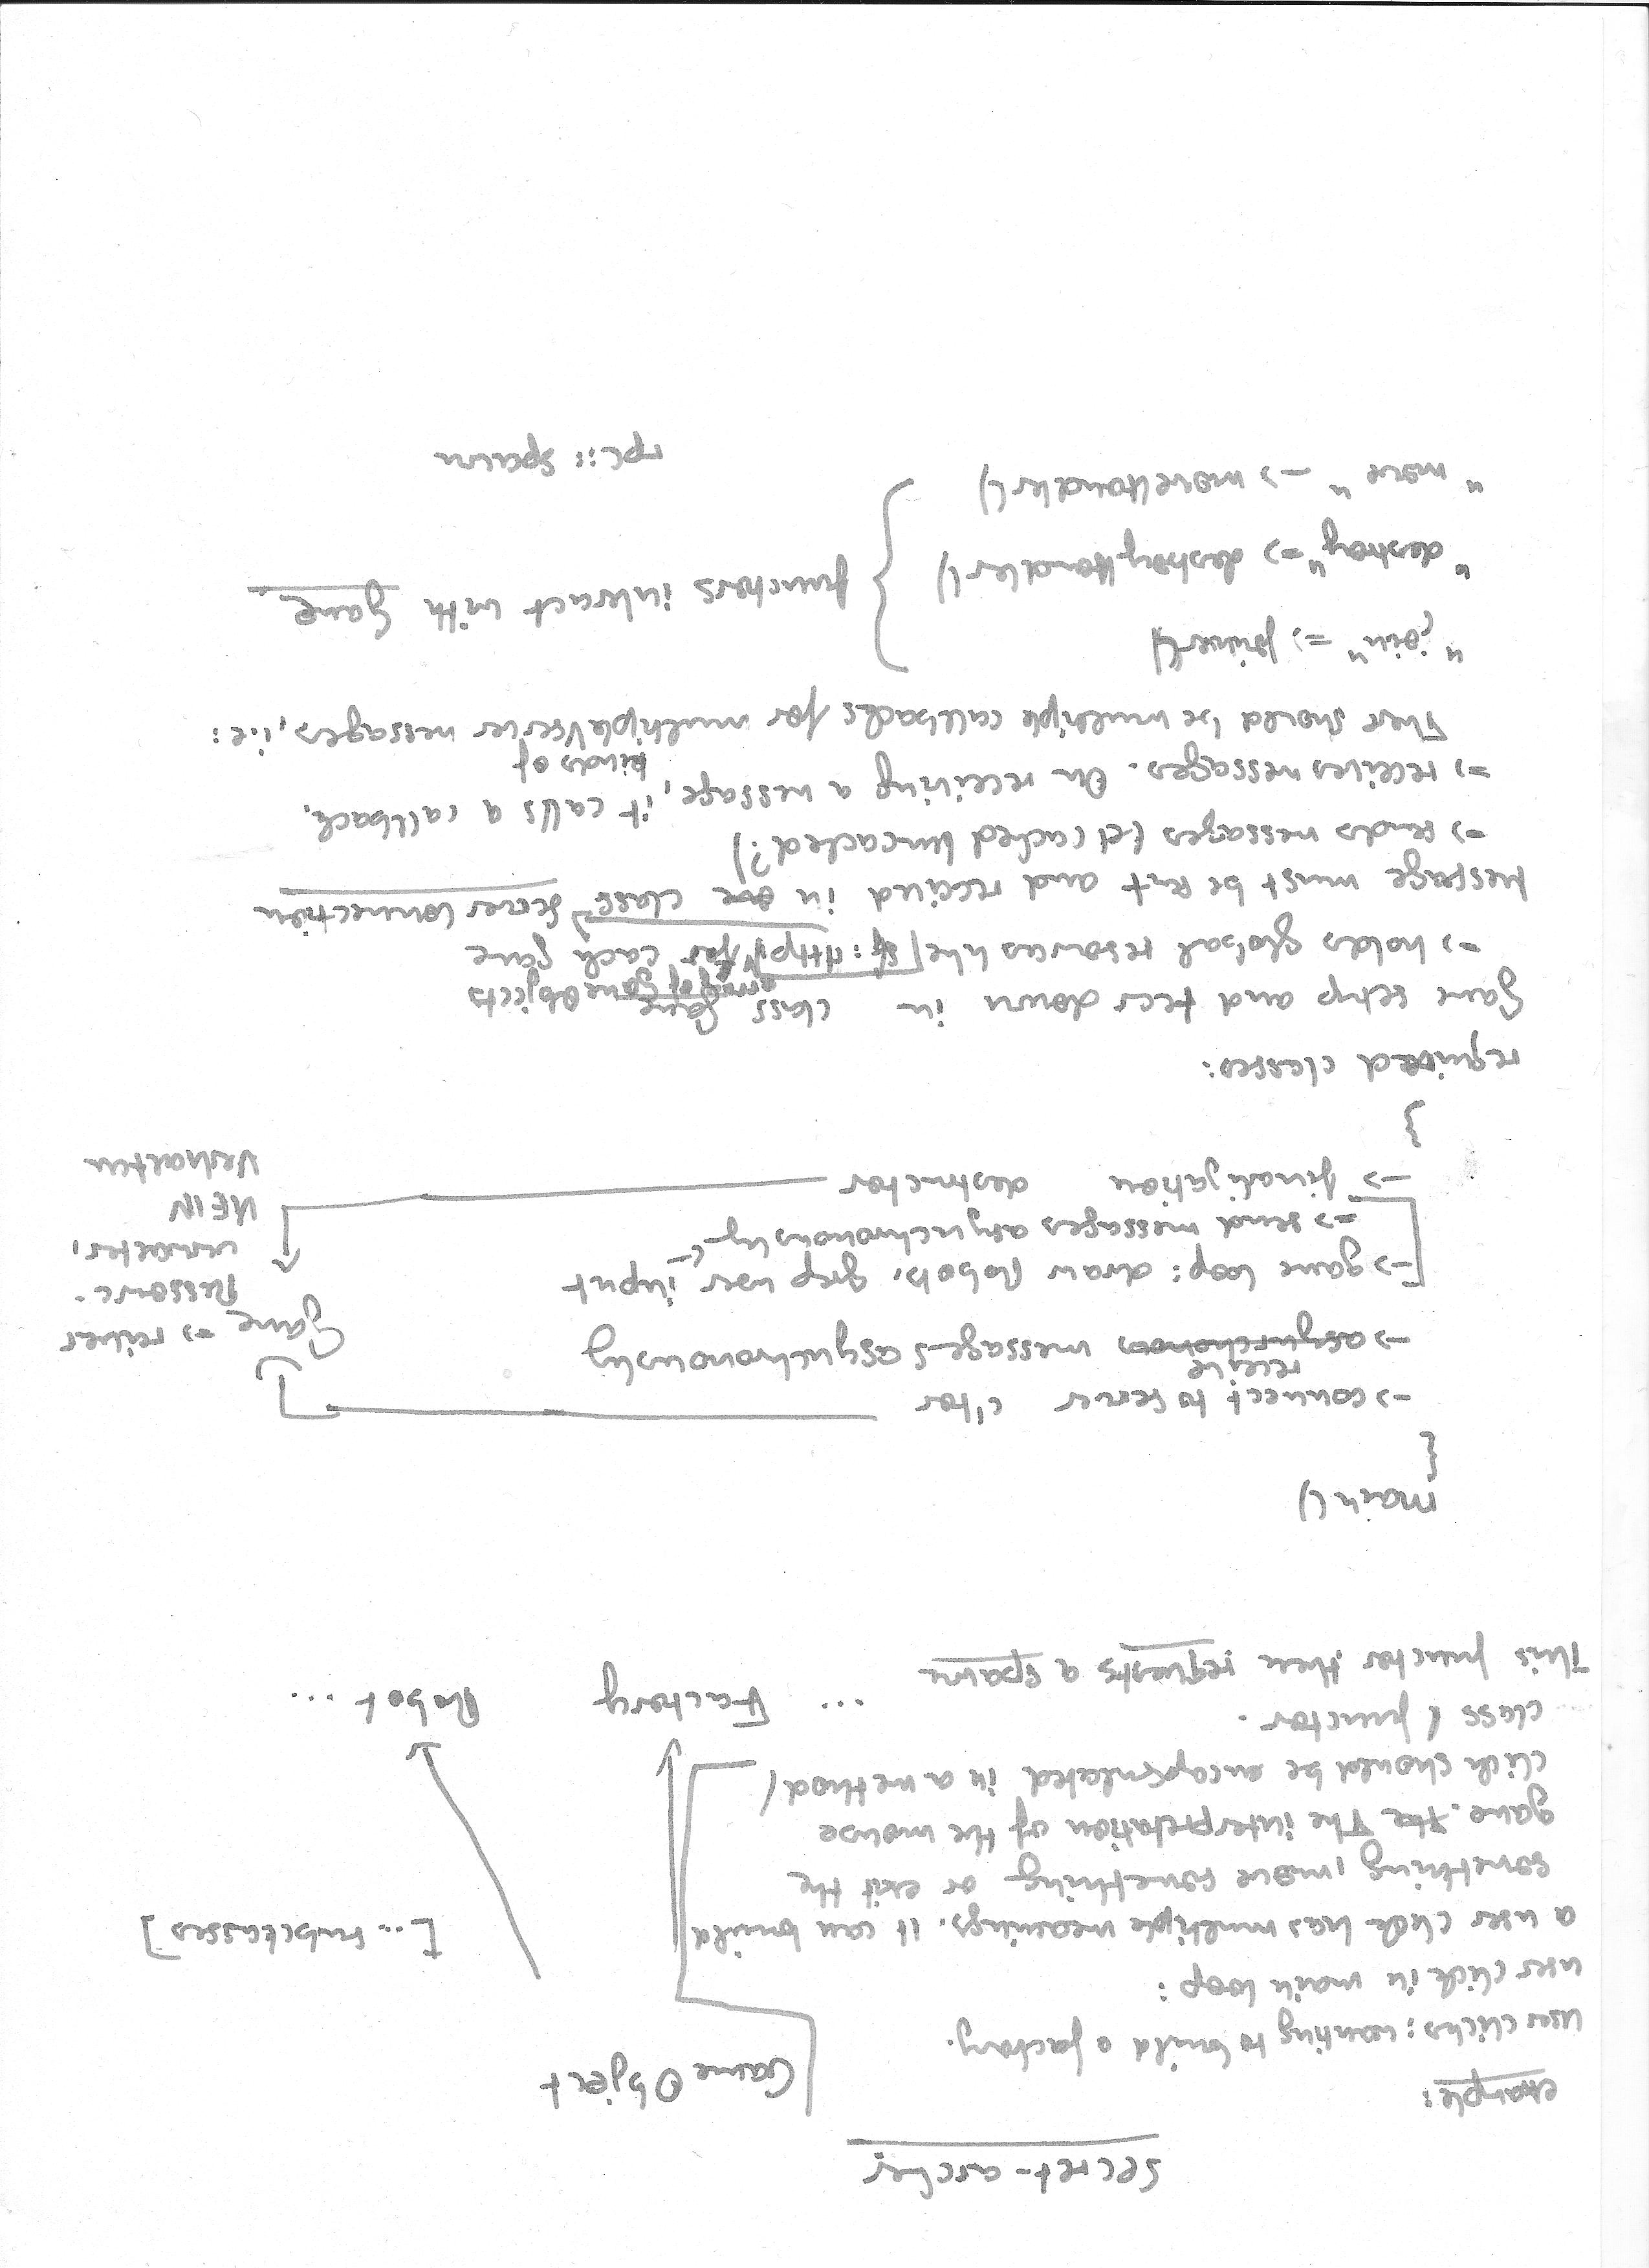 secret-ascii
example:
user clicks: wanting to build a factory.
user click in main loop:
a user click has multiple meanings. it can build
something, move something or exit the
game. The interpretation of the mouse
click should be encapsulated in a method /
class / functor.
This functor then requests a spawn
GameObject
[... subclasses]
... Factory Robot ...
main()
{
-> connect to server c'tor
-> receive messages asynchronously
-> game loop: draw Robots, grep user input
=> send messages asynchronously
-> finalization destructor
}
Game => reines
Ressourc.
verwalten
required classes:
Game setup and tear down in class Game
array of GameObjects
-> holds global resources like sf::Http for each game
Message must be sent and received in class ServerConnection
=> sends messages (cached/uncached?)
=> receives messages. On receiving a message, it calls a callback.
There should be multiple callbacks for multiple kinds of server messages, i.e:
"join" => joiner()
"destroy" => destroyHandler()
"move" -> moveHandler()
functors interact with Game
rpc::spawn